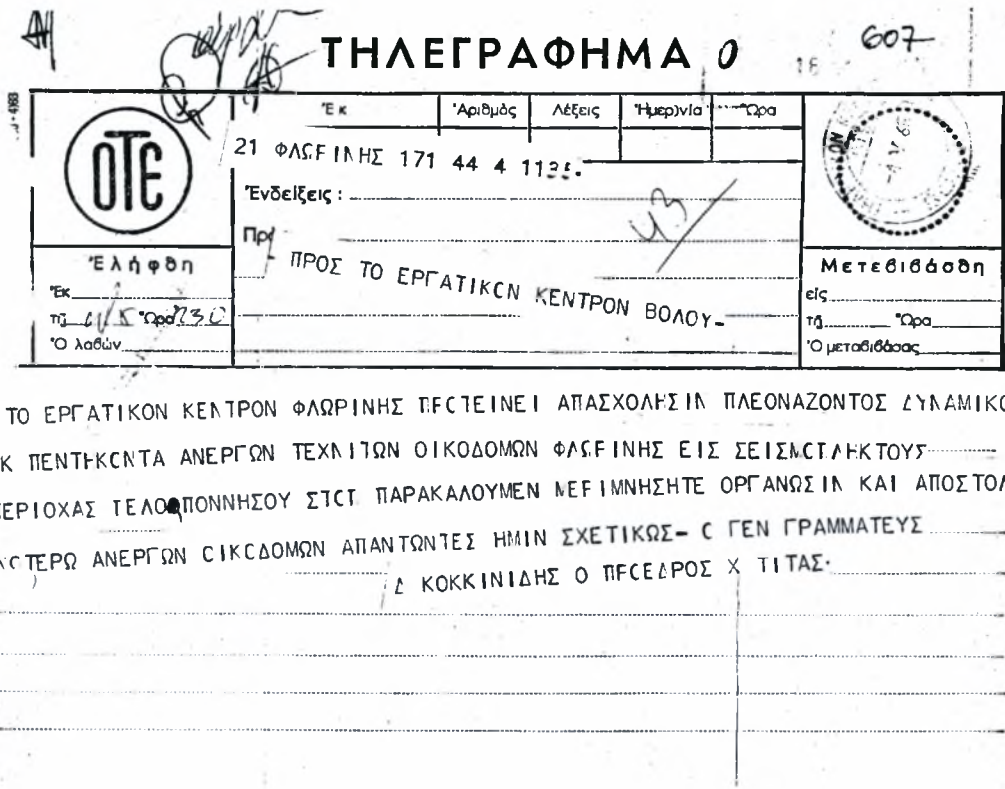 607
ΤΗΛΕΓΡΑΦΗΜΑ 0
18
ΟΤΕ
Ἐκ Ἀριθμὸς Λέξεις Ἡμερ)νία Ὥρα
21 ΦΛΩΡΙΝΗΣ 171 44 4 1135-
Ἐνδείξεις :
43
Πρ
ΠΡΟΣ ΤΟ ΕΡΓΑΤΙΚΟΝ ΚΕΝΤΡΟΝ ΒΟΛΟΥ-
Ἐλήφθη
Ἐκ
τῇ Ὥρα 1230
Ὁ λαβών
Μετεβιβάσθη
εἰς
τῇ Ὥρα
Ὁ μεταβιβάσας
ΤΟ ΕΡΓΑΤΙΚΟΝ ΚΕΝΤΡΟΝ ΦΛΩΡΙΝΗΣ ΠΡΟΤΕΙΝΕΙ ΑΠΑΣΧΟΛΗΣΙΝ ΠΛΕΟΝΑΖΟΝΤΟΣ ΔΥΝΑΜΙΚΟ
Κ ΠΕΝΤΗΚΟΝΤΑ ΑΝΕΡΓΩΝ ΤΕΧΝΙΤΩΝ ΟΙΚΟΔΟΜΩΝ ΦΛΩΡΙΝΗΣ ΕΙΣ ΣΕΙΣΜΟΠΛΗΚΤΟΥΣ
ΕΡΙΟΧΑΣ ΠΕΛΟΠΟΝΝΗΣΟΥ ΣΤΟΠ ΠΑΡΑΚΑΛΟΥΜΕΝ ΜΕΡΙΜΝΗΣΗΤΕ ΟΡΓΑΝΩΣΙΝ ΚΑΙ ΑΠΟΣΤΟΛ
ΩΤΕΡΩ ΑΝΕΡΓΩΝ ΟΙΚΟΔΟΜΩΝ ΑΠΑΝΤΩΝΤΕΣ ΗΜΙΝ ΣΧΕΤΙΚΩΣ- Ο ΓΕΝ ΓΡΑΜΜΑΤΕΥΣ
Δ ΚΟΚΚΙΝΙΔΗΣ Ο ΠΡΟΕΔΡΟΣ Χ ΤΙΤΑΣ.